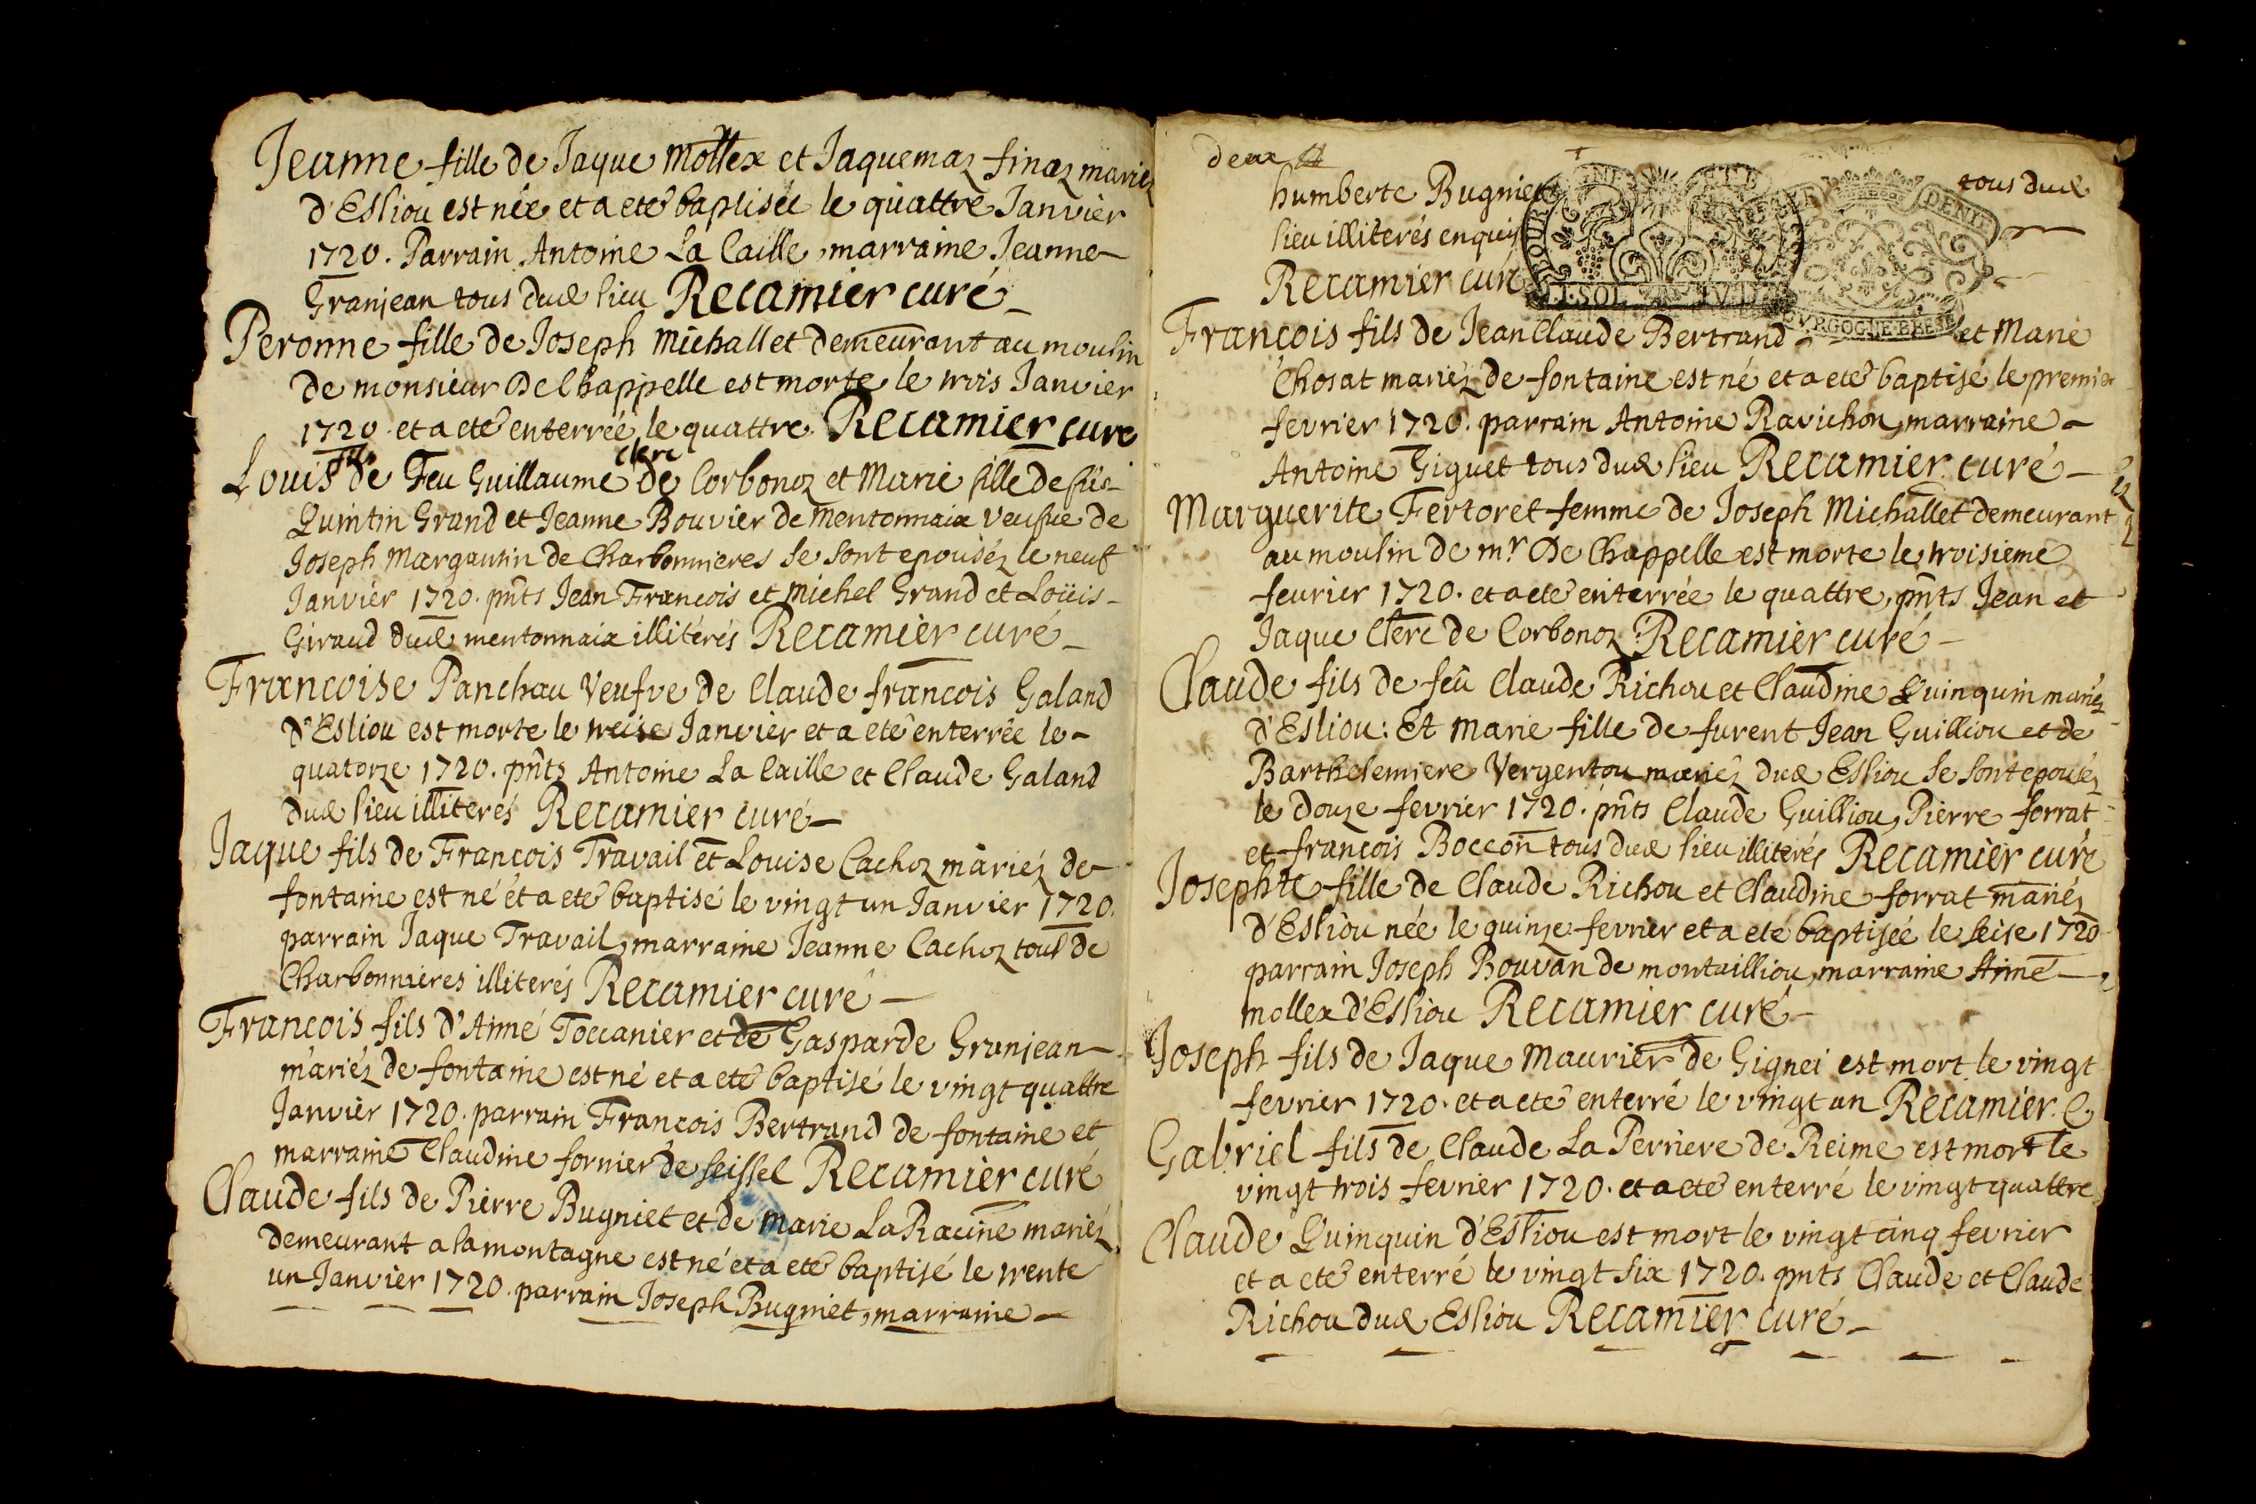 Jeanne fille de Jaque Mollex et Jaquemaz finaz mariez
d'Esliou est née et a eté baptisée le quattre Janvier
1720. Parrain Antoine La Caille, marraine Jeanne
Granjean tous dud lieu Recamier curé
Peronne fille de Joseph Michallet demeurant au moulin
de monsieur De Chappelle est morte le trois Janvier
1720 et a eté enterreé le quattre Recamier curé
fils clerc
Louis de Feu Guillaume de Corbonoz et Marie fille de
Quintin Grand et Jeanne Bouvier de mentonnaix veufve de
Joseph Margantin de Charbonnieres se sont epouséz le neuf
Janvier 1720. pnts Jean Francois et Michel Grand et Loüis
Giraud dud mentonnaix illitérés Recamier curé
Francoise Panchau Veufve de Claude francois Galand
d'Esliou est morte le treise Janvier et a eté enterrée le
quatorze 1720. pnts Antoine La Caille et Claude Galand
dud lieu illiterés Recamier curé
Jaque fils de François Travail et Louise Cachoz mariez de
fontaine est né et a eté baptisé le vingt un Janvier 1720.
parrain Jaque Travail, marraine Jeanne Cachoz tous de
Charbonnieres illiterés Recamier curé
Francois fils d'Aimé Toccanier et de Gasparde Granjean
mariéz de fontaine est né et a eté baptisé le vingt quattre
Janvier 1720. parrain Francois Bertrand de fontaine et
marraine Claudine fornier de seissel Recamier curé
Claude fils de Pierre Bugniet et de Marie La Racine mariéz
demeurant a la montagne est né et a eté baptisé le trente
un Janvier 1720. parrain Joseph Bugniet, marraine
deux
humberte Bugniet tous dud
lieu illiterés enquis
Recamier curé
BOURGOGNE BRESSE
François fils de Jean Claude Bertrand et Marie
Chosat mariéz de fontaine est né et a eté baptisé le premier
fevrier 1720. parrain Antoine Ravichon, marraine
Antoine Giguet tous dud lieu Recamier curé
Marguerite Fertoret femme de Joseph Michallet demeurant
au moulin de mr De Chappelle est morte le troisieme
fevrier 1720. et a eté enterrée le quattre, pnts Jean et
Jaque Clerc de Corbonoz Recamier curé
Claude fils de feu Claude Richou et Claudine Quinquin mariéz
d'Esliou: Et Marie fille de furent Jean Guilliou et de
Barthelemiere Vergentou mariéz dud Esliou se sont epouséz
le douze fevrier 1720. pnts Claude Guilliou, Pierre forrat
et françois Boccon tous dud lieu illiterés Recamier curé
Josephte fille de Claude Richou et Claudine forrat mariéz
d'Esliou née le quinze fevrier et a eté baptisée le seise 1720
parrain Joseph Bouvan de montailliou, marraine Aimé
mollex d'Esliou Recamier curé
Joseph fils de Jaque Maurier de Gignei est mort le vingt
fevrier 1720. et a eté enterré le vingt un Recamier C
Gabriel fils de Claude La Perriere de Reime est mort le
vingt trois fevrier 1720. et a eté enterré le vingt quattre
Claude Quinquin d'Esliou est mort le vingt cinq fevrier
et a eté enterré le vingt six 1720. pnts Claude et Claude
Richou dud Esliou Recamier curé